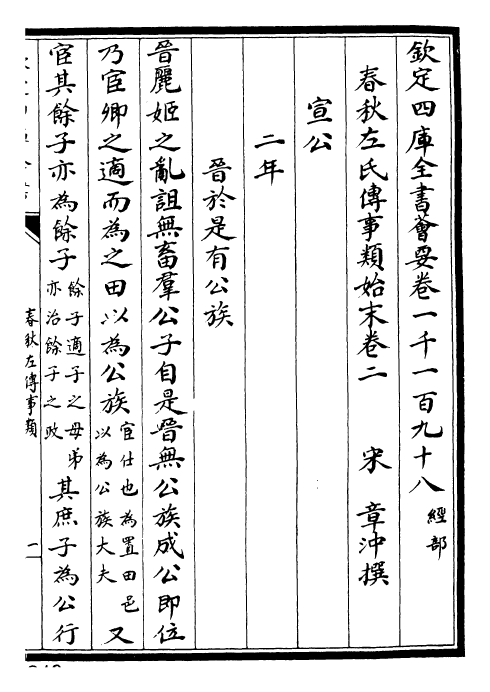 欽定四庫全書薈要卷一千一百九十八 經部
春秋左氏傳事類始末卷二 宋 章沖撰
宣公
二年
晉於是有公族
晉麗姬之亂詛無畜羣公子自是晉無公族成公即位
乃宦卿之適而為之田以為公族 宦仕也為置田邑以為公族大夫 又
宦其餘子亦為餘子 餘子適子之母弟亦治餘子之政 其庶子為公行
春秋左傳事類
一